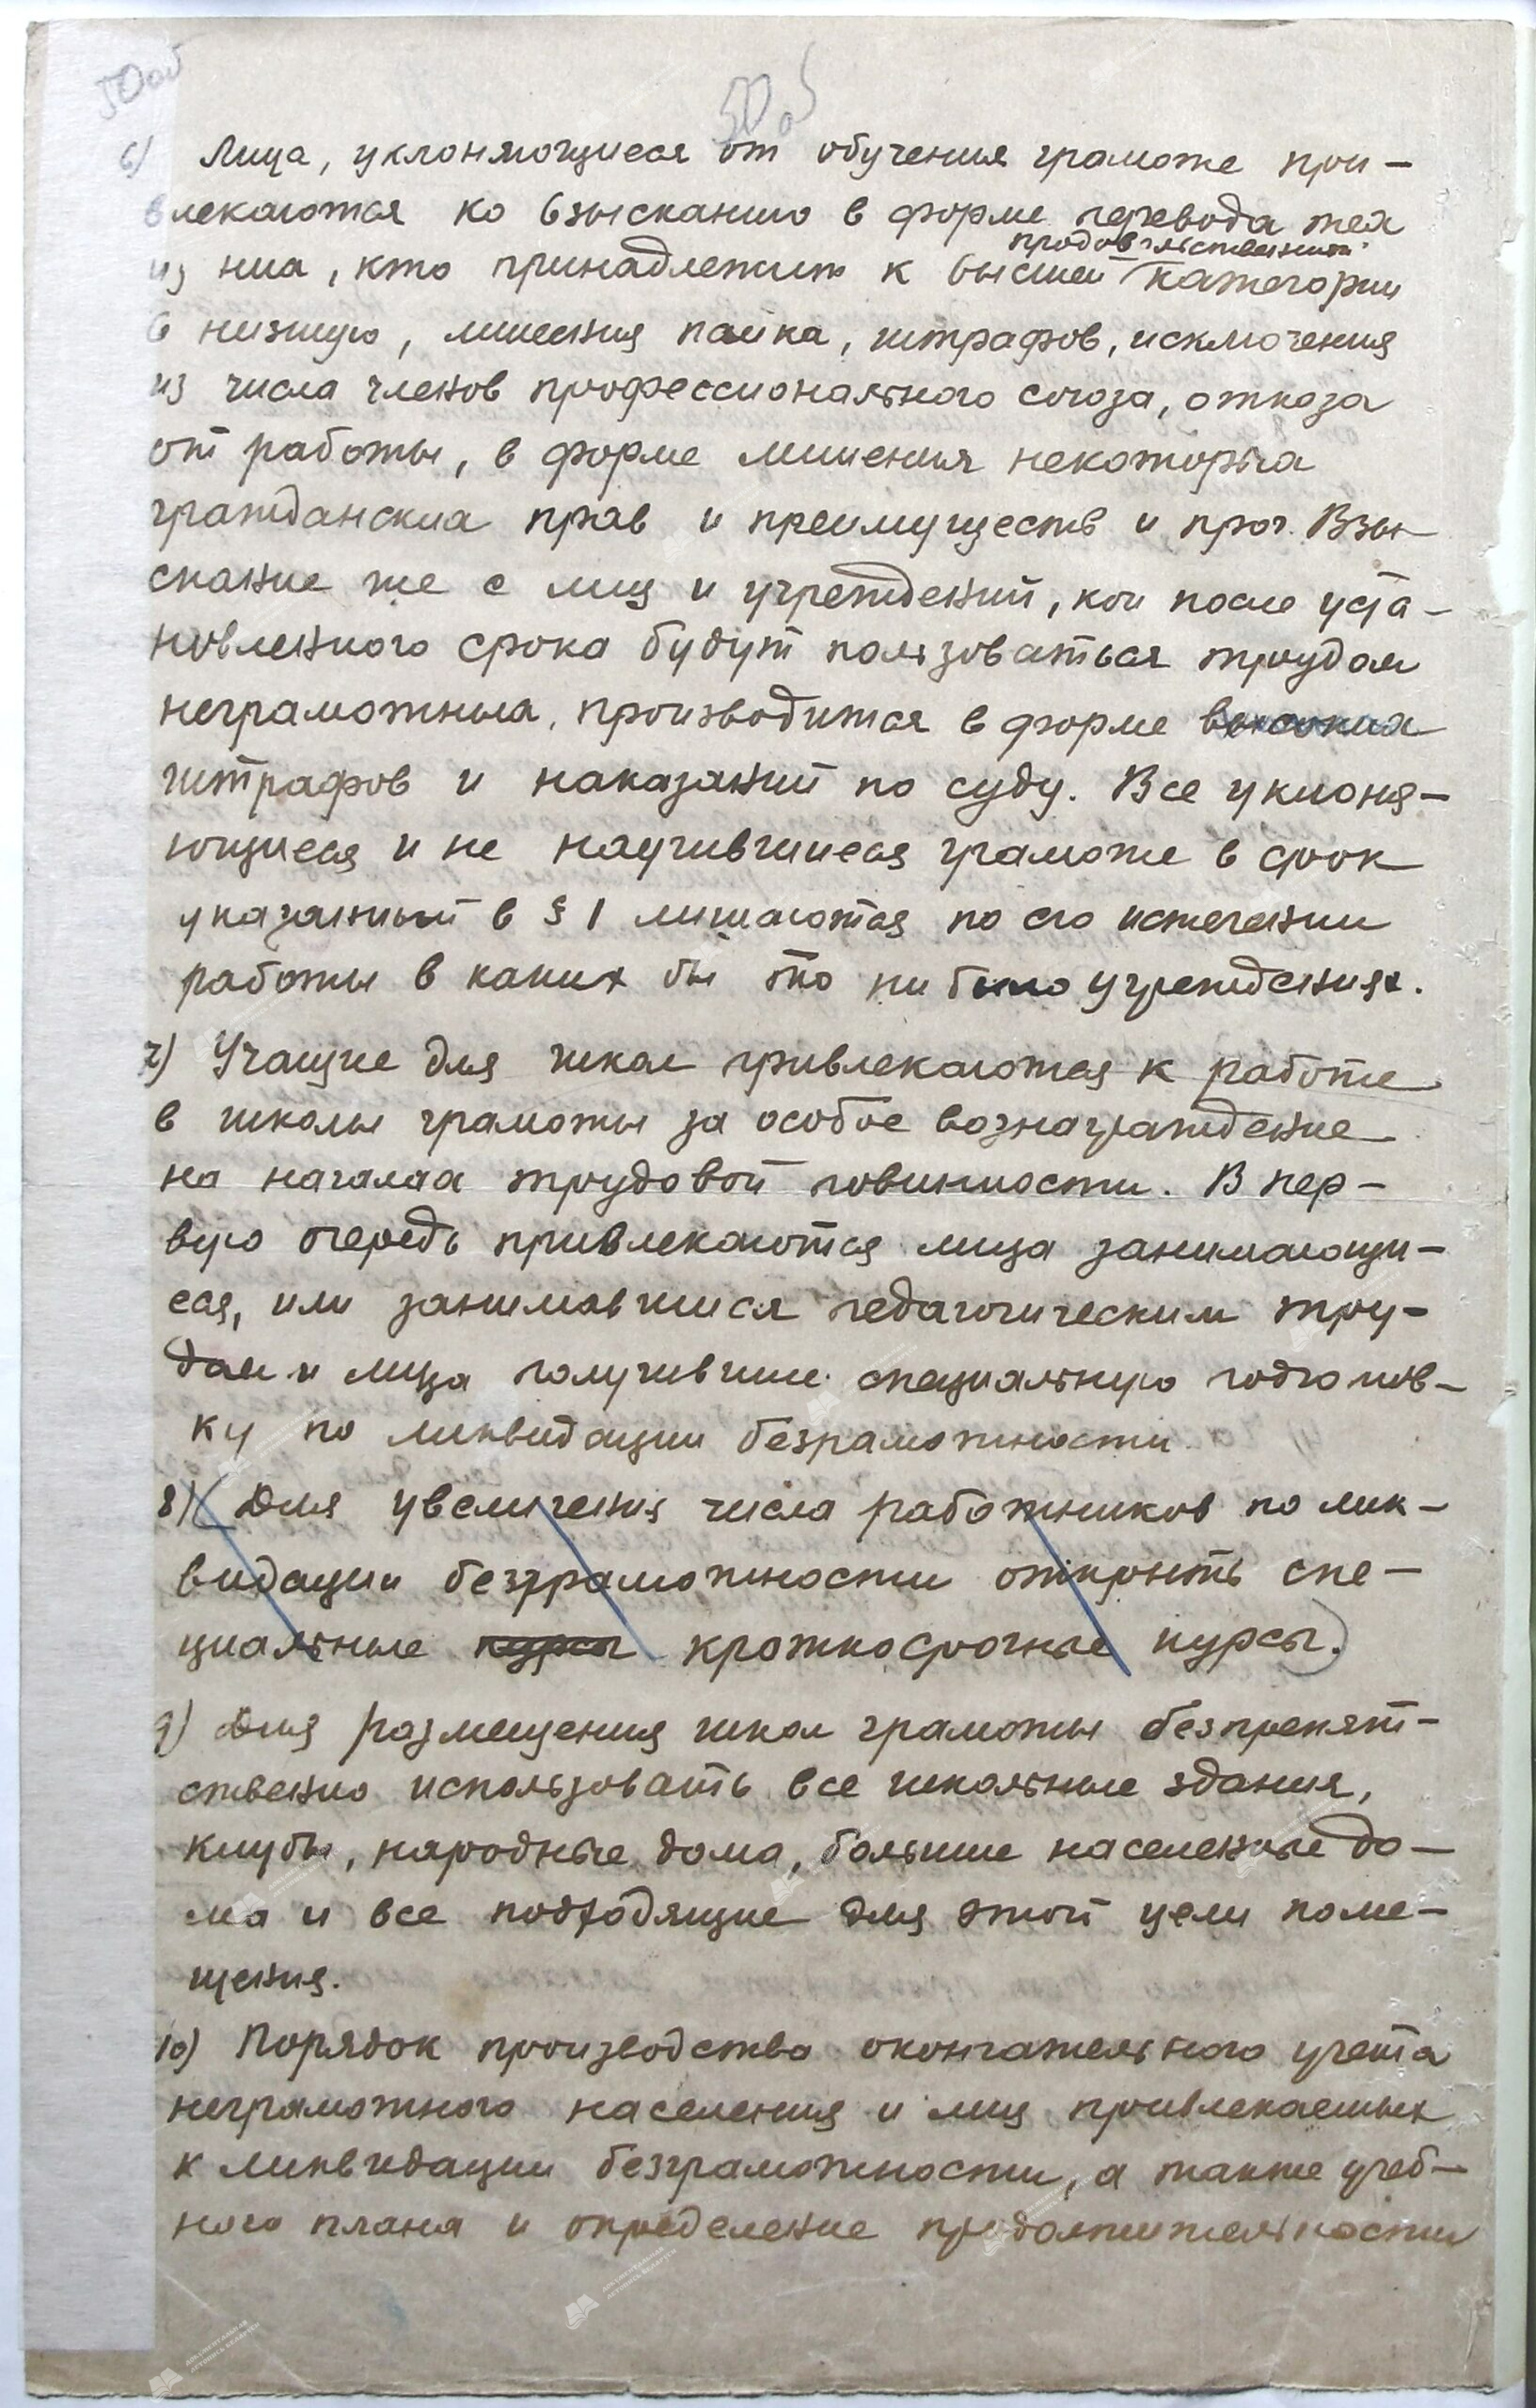 50об
50об
6) Лица, уклоняющиеся от обучения грамоте при-
влекаются ко взысканию в форме перевода тех
продовольственной
из них, кто принадлежит к высшей категории
в низшую, лишения пайка, штрафов, исключения
из числа членов профессионального союза, отказа
от работы, в форме лишения некоторых
гражданских прав и преимуществ и проч. Взы-
скание же с лиц и учреждений, кои после уста-
новленного срока будут пользоваться трудом
неграмотных, производится в форме высоких
штрафов и наказаний по суду. Все уклоня-
ющиеся и не научившиеся грамоте в срок
указанный в § 1 лишаются по его истечении
работы в каких бы то ни было учреждениях.
7) Учащие для школ привлекаются к работе
в школы грамоты за особое вознаграждение
на началах трудовой повинности. В пер-
вую очередь привлекаются лица занимающи-
еся, или занимавшиеся педагогическим тру-
дом и лица получившие специальную подготов-
ку по ликвидации безграмотности
8) (Для увеличения числа работников по лик-
видации безграмотности открыть спе-
циальные курсы краткосрочные курсы.)
9) Для размещения школ грамоты безпрепят-
ственно использовать все школьные здания,
клубы, народные дома, большие населенные до-
ма и все подходящие для этой цели поме-
щения.
10) Порядок производства окончательного учета
неграмотного населения и лиц привлекаемых
к ликвидации безграмотности, а также учеб-
ного плана и определение продолжительности
ДОКУМЕНТАЛЬНАЯ
ЛЕТОПИСЬ БЕЛАРУСИ
ДОКУМЕНТАЛЬНАЯ
ЛЕТОПИСЬ БЕЛАРУСИ